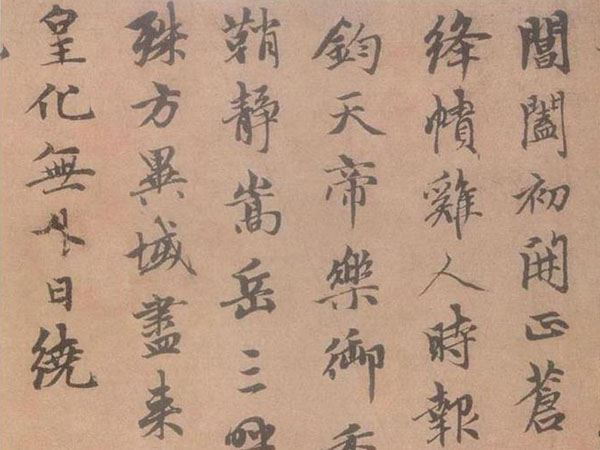 閶闔初開正蒼
絳幘雞人時報
鈞天帝樂御
鞘靜嵩岳三
殊方異域盡来
皇化無外日繞